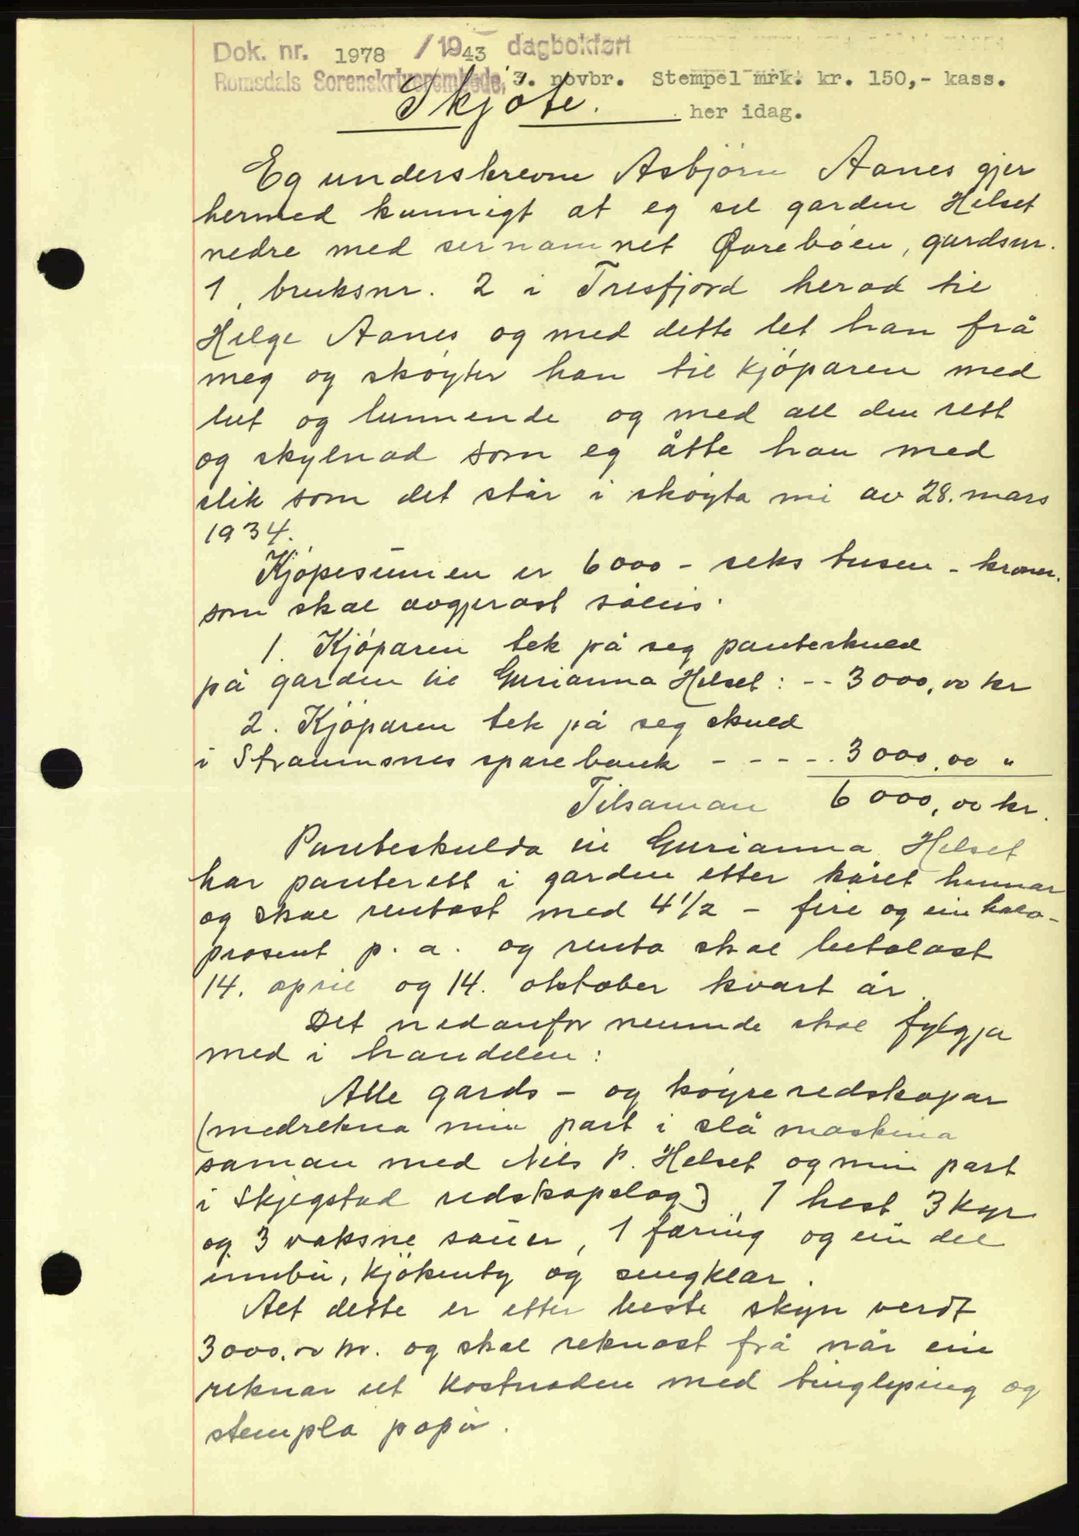 Dok. nr. 1978 /1943 dagbokført
Romsdals Sorenskriverembede, 3. novbr. Stempel mrk. kr. 150,- kass.
her idag.
Skjöte.
Eg underskrevne Asbjörn Aanes gjer
hermed kunnigt at eg sel garden Helset
nedre med sernamnet Øvreböen, gardsnr.
1, bruksnr. 2 i Tresfjord herad til
Helge Aanes og med dette let han frå
meg og sköyter han til kjöparen med
lut og lunnende og med all den rett
og skylnad som eg åtte han med
slik som det står i sköyta mi av 28. mars
1934.
Kjöpesumen er 6000 - seks tusen - kroner.
som skal avgjerast såleis:
1. Kjöparen tek på seg panteskuld
på garden til Gurianna Helset: -- 3000,00 kr
2. Kjöparen tek på seg skuld
i Straumsnes sparebank - - - - - 3000,00 "
Tilsaman 6000,00 kr.
Panteskulda til Gurianna Helset
har panterett i garden etter kåret hennar
og skal rentast med 4 1/2 - fire og ein halv -
prosent p. a. og renta skal betalast
14. april og 14. oktober kvart år.
Det nedanfor nemnde skal fylgja
med i handelen:
Alle gards - og köyreredskapar
(medrekna min part i slåmaskina
saman med Nils P. Helset og min part
i Skjegstad redskapslag) 1 hest 3 kyr
og 3 vaksne sauer, 1 færing og ein del
innbu, kjökenty og sengklær.
Alt dette er etter beste skyn verdt
3000.00 kr. og skal reknast frå når ein
reknar ut kostnaden med tinglysing og
stempla papir.